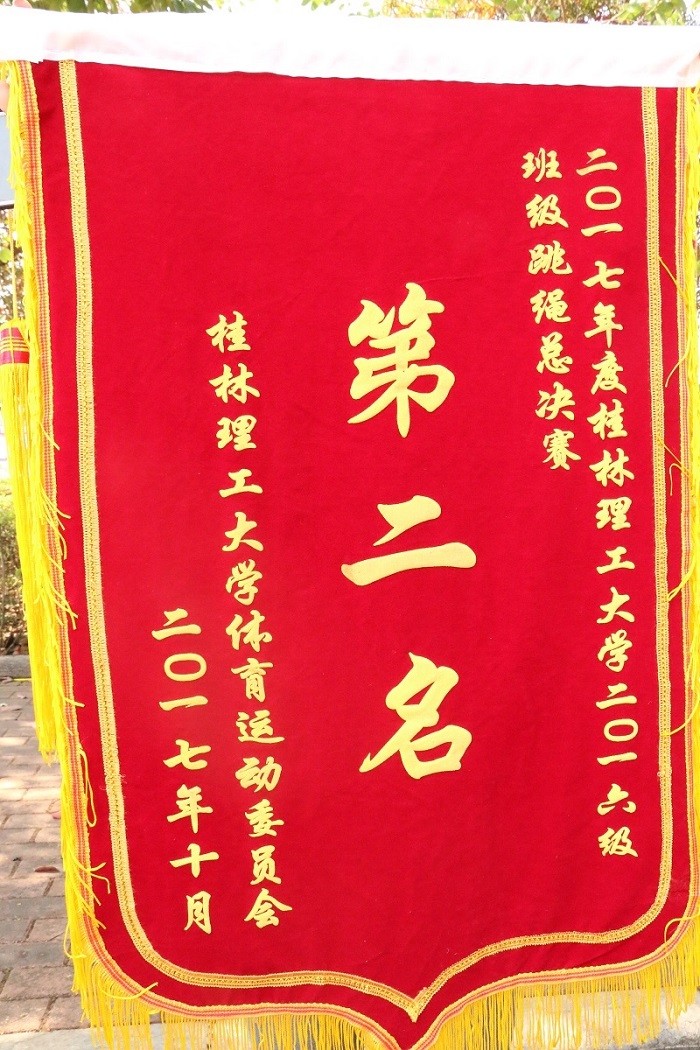 二〇一七年度桂林理工大学二〇一六级
班级跳绳总决赛
第二名
桂林理工大学体育运动委员会
二〇一七年十月